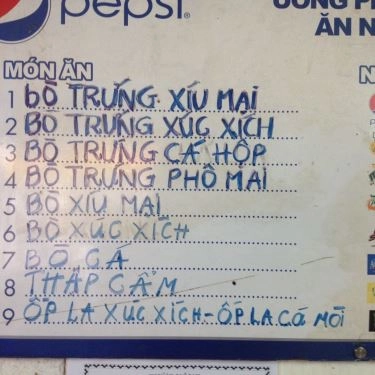 pepsi
UỐNG
ĂN N
MÓN ĂN
1 BÒ TRỨNG XÍU MẠI
2 BÒ TRỨNG XÚC XÍCH
3 BÒ TRỨNG CÁ HỘP
4 BÒ TRỨNG PHÔ MAI
5 BÒ XÍU MẠI
6 BÒ XÚC XÍCH
7 BÒ CÁ
8 THẬP CẨM
9 ỐP LA XÚC XÍCH-ỐP LA CÁ MÒI